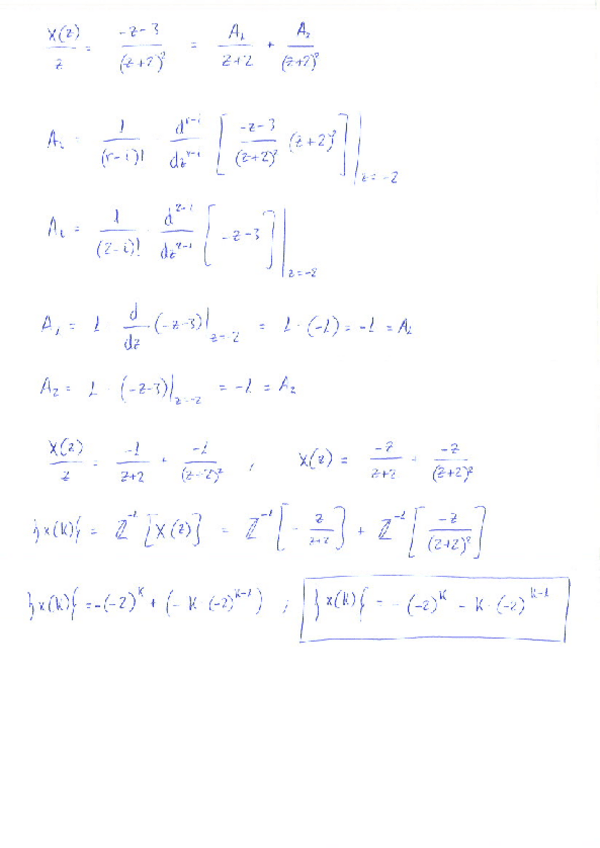 X(z)/z = (-z-3)/(z+2)² = A₁/(z+2) + A₂/(z+2)²
Aᵢ = 1/(r-i)! d^(r-i)/dz^(r-i) [ (-z-3)/(z+2)² (z+2)² ] |z=-2
Aᵢ = 1/(2-i)! · d^(2-i)/dz^(2-i) [ -z-3 ] |z=-2
A₁ = 1 · d/dz (-z-3)|z=-2 = 1·(-1) = -1 = A₁
A₂ = 1 · (-z-3)|z=-2 = -1 = A₂
X(z)/z = -1/(z+2) + -1/(z+2)² , X(z) = -z/(z+2) + -z/(z+2)²
{x(k)} = Z⁻¹[X(z)] = Z⁻¹[-z/(z+2)] + Z⁻¹[-z/(z+2)²]
{x(k)} = -(-2)^k + (-k·(-2)^(k-1)) ; {x(k)} = -(-2)^k - k·(-2)^(k-1)